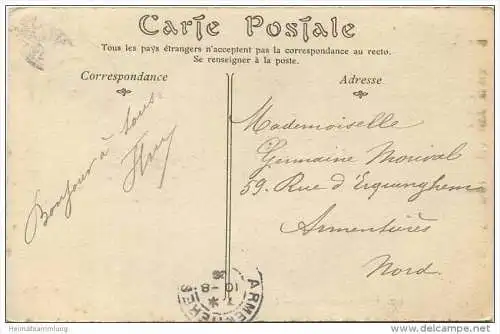 Carte Postale
Tous les pays étrangers n'acceptent pas la correspondance au recto.
Se renseigner à la poste.
Correspondance
Adresse
Bonjour à tous
Mademoiselle
Germaine Morival
59. Rue d'Erquinghem
Armentières
Nord.
10-8
Heimatsammlung.de